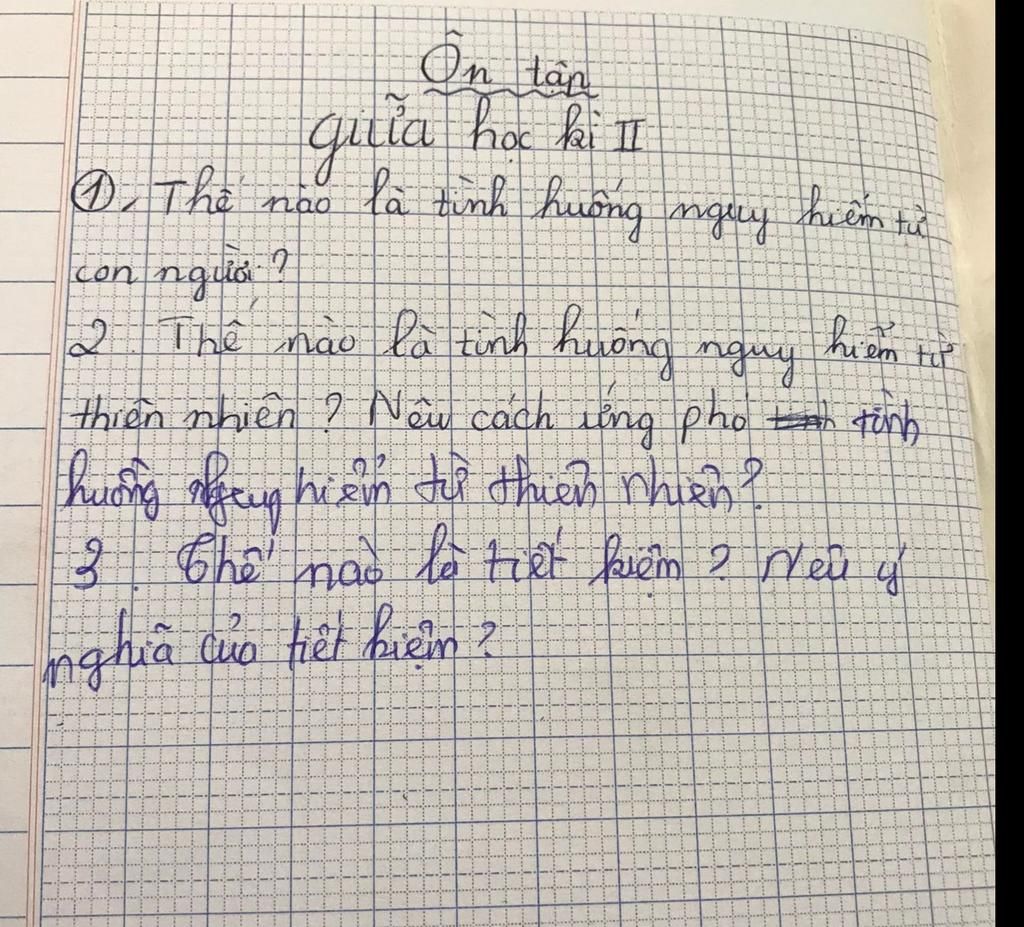 Ôn tập
giữa học kì II
①, Thế nào là tình huống nguy hiểm từ
con người?
2. Thế nào là tình huống nguy hiểm từ
thiên nhiên? Nêu cách ứng phó tình
huống nguy hiểm từ thiên nhiên?
3. Thế nào là tiết kiệm? Nêu ý
nghĩa của tiết kiệm?